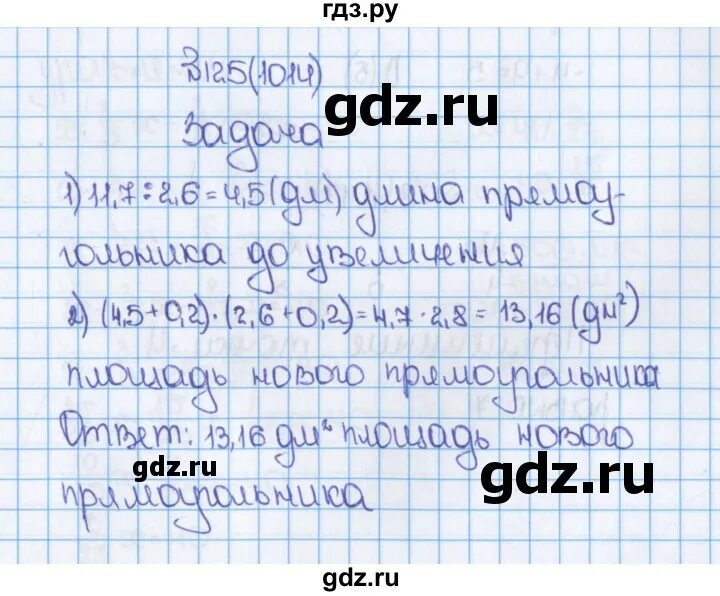 гдз.ру
№125(1014)
gdz.ru
Задача
1) 11,7 : 2,6 = 4,5 (дм) длина прямоу-
гольника до увеличения
2) (4,5 + 0,2) · (2,6 + 0,2) = 4,7 · 2,8 = 13,16 (дм²)
площадь нового прямоугольника
Ответ: 13,16 дм² площадь нового
gdz.ru
gdz.ru
прямоугольника
gdz.ru